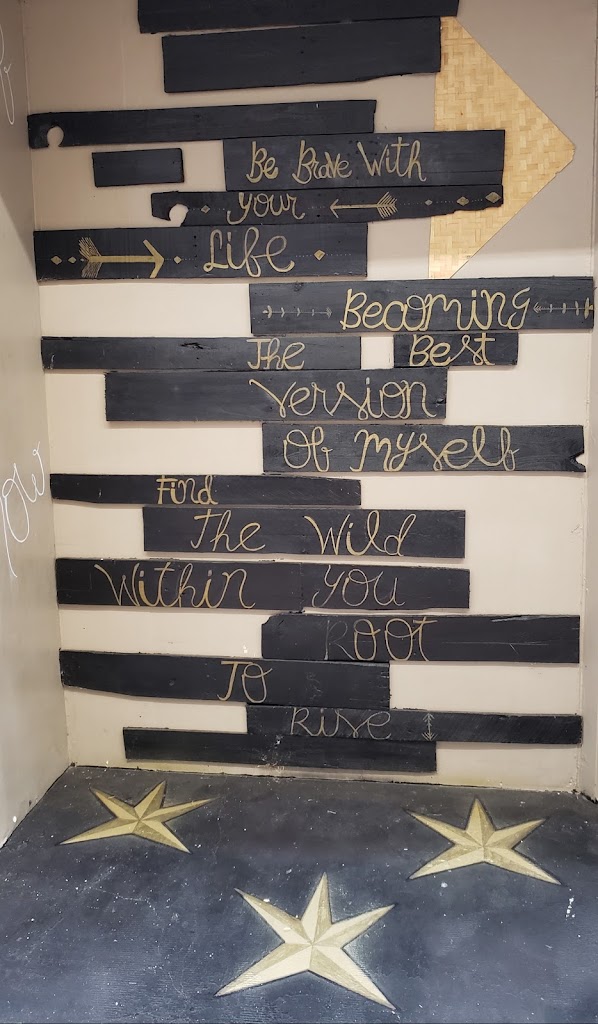 Be Brave With
your
Life
Becoming
The Best
Version
Of Myself
Find
The Wild
Within you
ROOT
TO
Rise